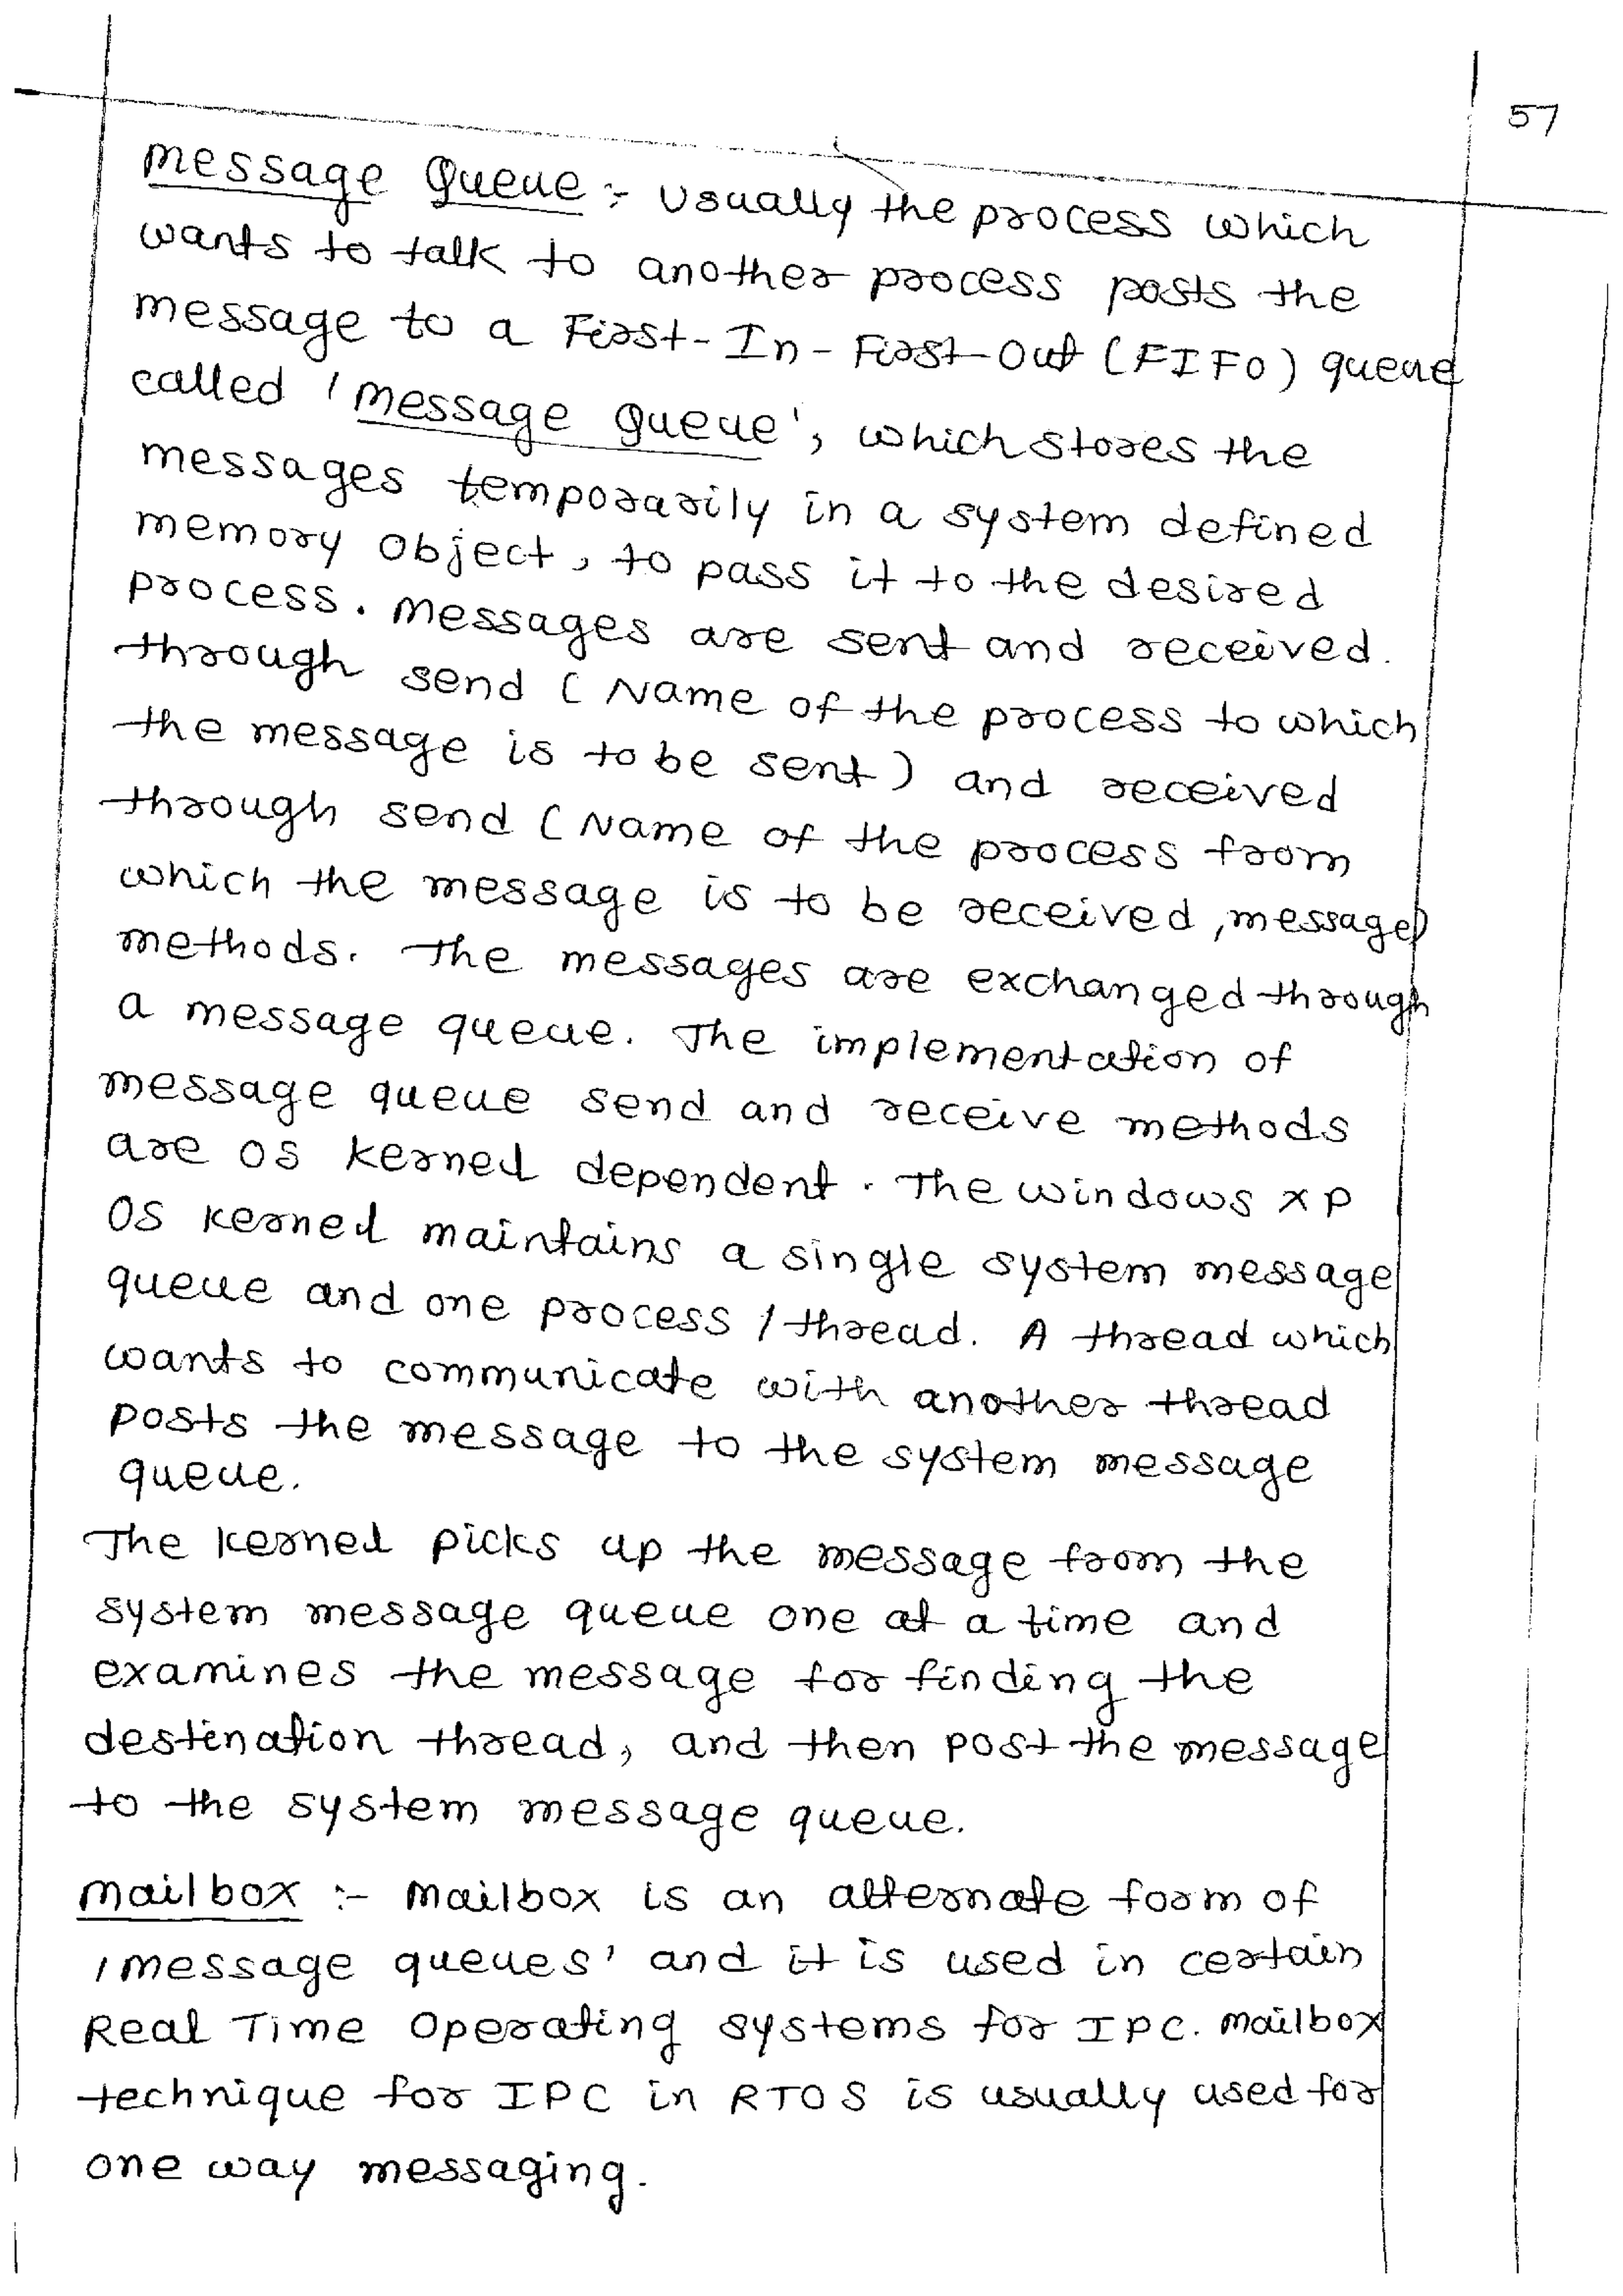 57
Message Queue :- Usually the process which
wants to talk to another process posts the
message to a First-In-First-Out (FIFO) queue
called 'Message queue', which stores the
messages temporarily in a system defined
memory object, to pass it to the desired
process. Messages are sent and received.
through send (Name of the process to which
the message is to be sent) and received
through send (Name of the process from
which the message is to be received, message)
methods. The messages are exchanged through
a message queue. The implementation of
message queue send and receive methods
are OS kernel dependent. The windows XP
OS kernel maintains a single system message
queue and one process / thread. A thread which
wants to communicate with another thread
posts the message to the system message
queue.
The kernel picks up the message from the
system message queue one at a time and
examines the message for finding the
destination thread, and then post the message
to the system message queue.
Mailbox :- Mailbox is an alternate form of
'message queues' and it is used in certain
Real Time Operating systems for IPC. Mailbox
technique for IPC in RTOS is usually used for
one way messaging.